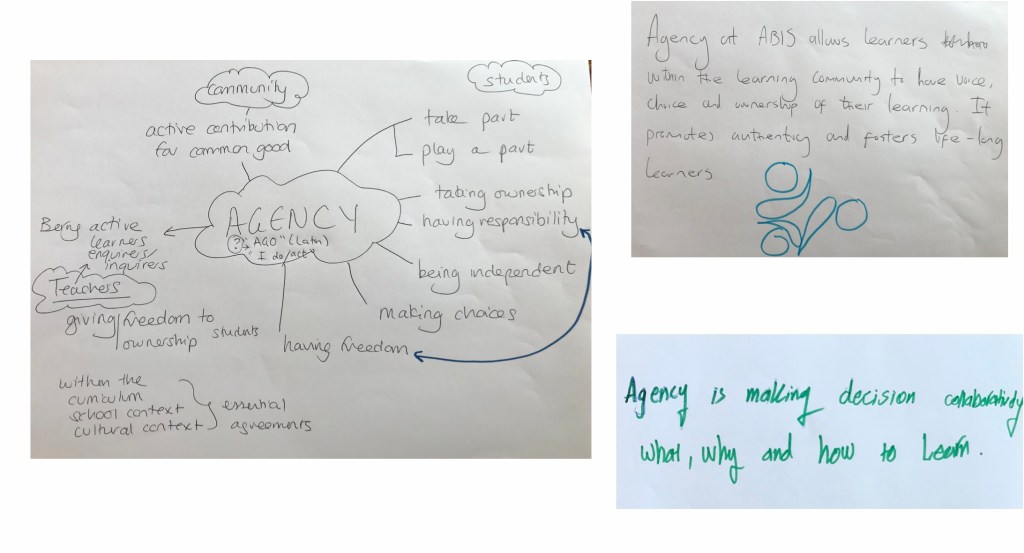 Community
active contribution
for common good
students
take part
play a part
taking ownership
having responsibility
being independent
making choices
having freedom
AGENCY
? "AGO" (Latin)
"I do/act"
Being active
learners
enquirers/
inquirers
Teachers
giving freedom to
ownership students
within the
curriculum
school context
cultural context
essential
agreements
Agency at ABIS allows learners
within the learning community to have voice,
choice and ownership of their learning. It
promotes authenticy and fosters life-long
learners
Agency is making decision collaboratively
what, why and how to learn.